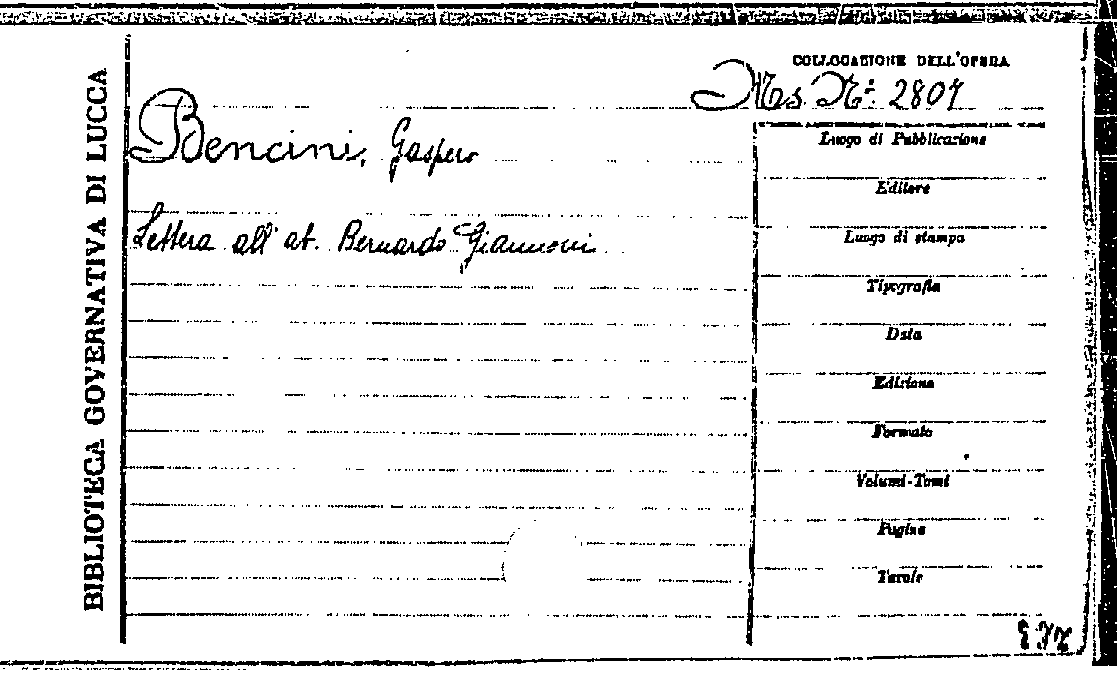 BIBLIOTECA GOVERNATIVA DI LUCCA
COLLOCAZIONE DELL'OPERA
Ms. N.º 2807
Bencini, Gaspero
Lettera all'ab. Bernardo Giannoni
Luogo di Pubblicazione
Editore
Luogo di stampa
Tipografia
Data
Edizione
Formato
Volumi-Tomi
Pagine
Tavole